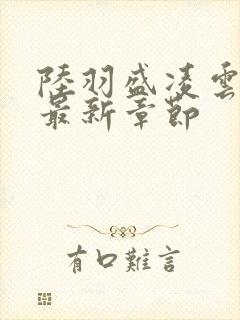 陸羽盛凌雲
最新章節
有口難言